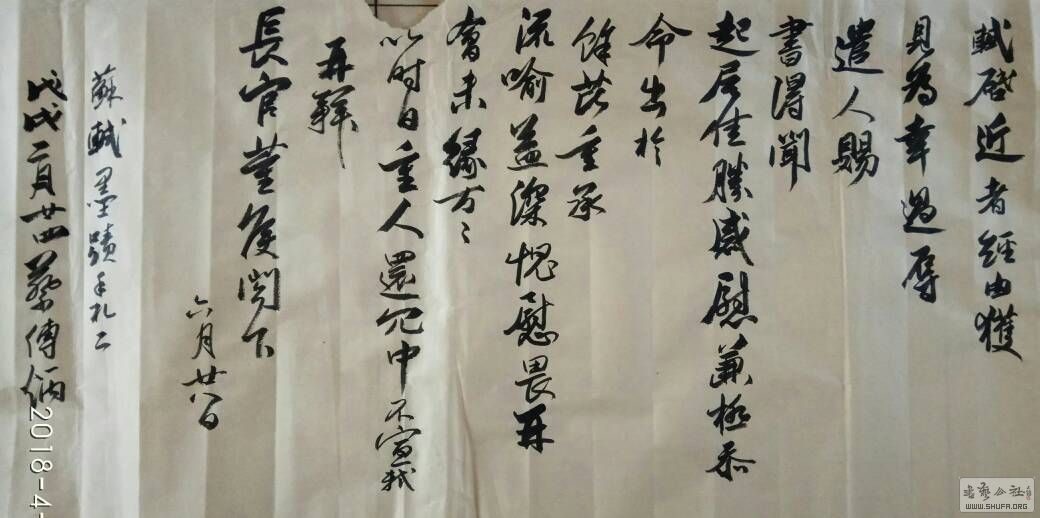 軾啓近者經由獲
見為幸過辱
遣人賜
書得聞
起居佳勝感慰兼極忝
命出於
餘芘重承
流喻益深愧慰畏再
會未緣万〻
以時自重人還冗中不宣軾
再拜
長官董侯閣下
六月廿八日
蘇軾墨蹟手札二
戊戌二月廿四蔡傳炳
2018-4-
書藝公社
WWW.SHUFA.ORG